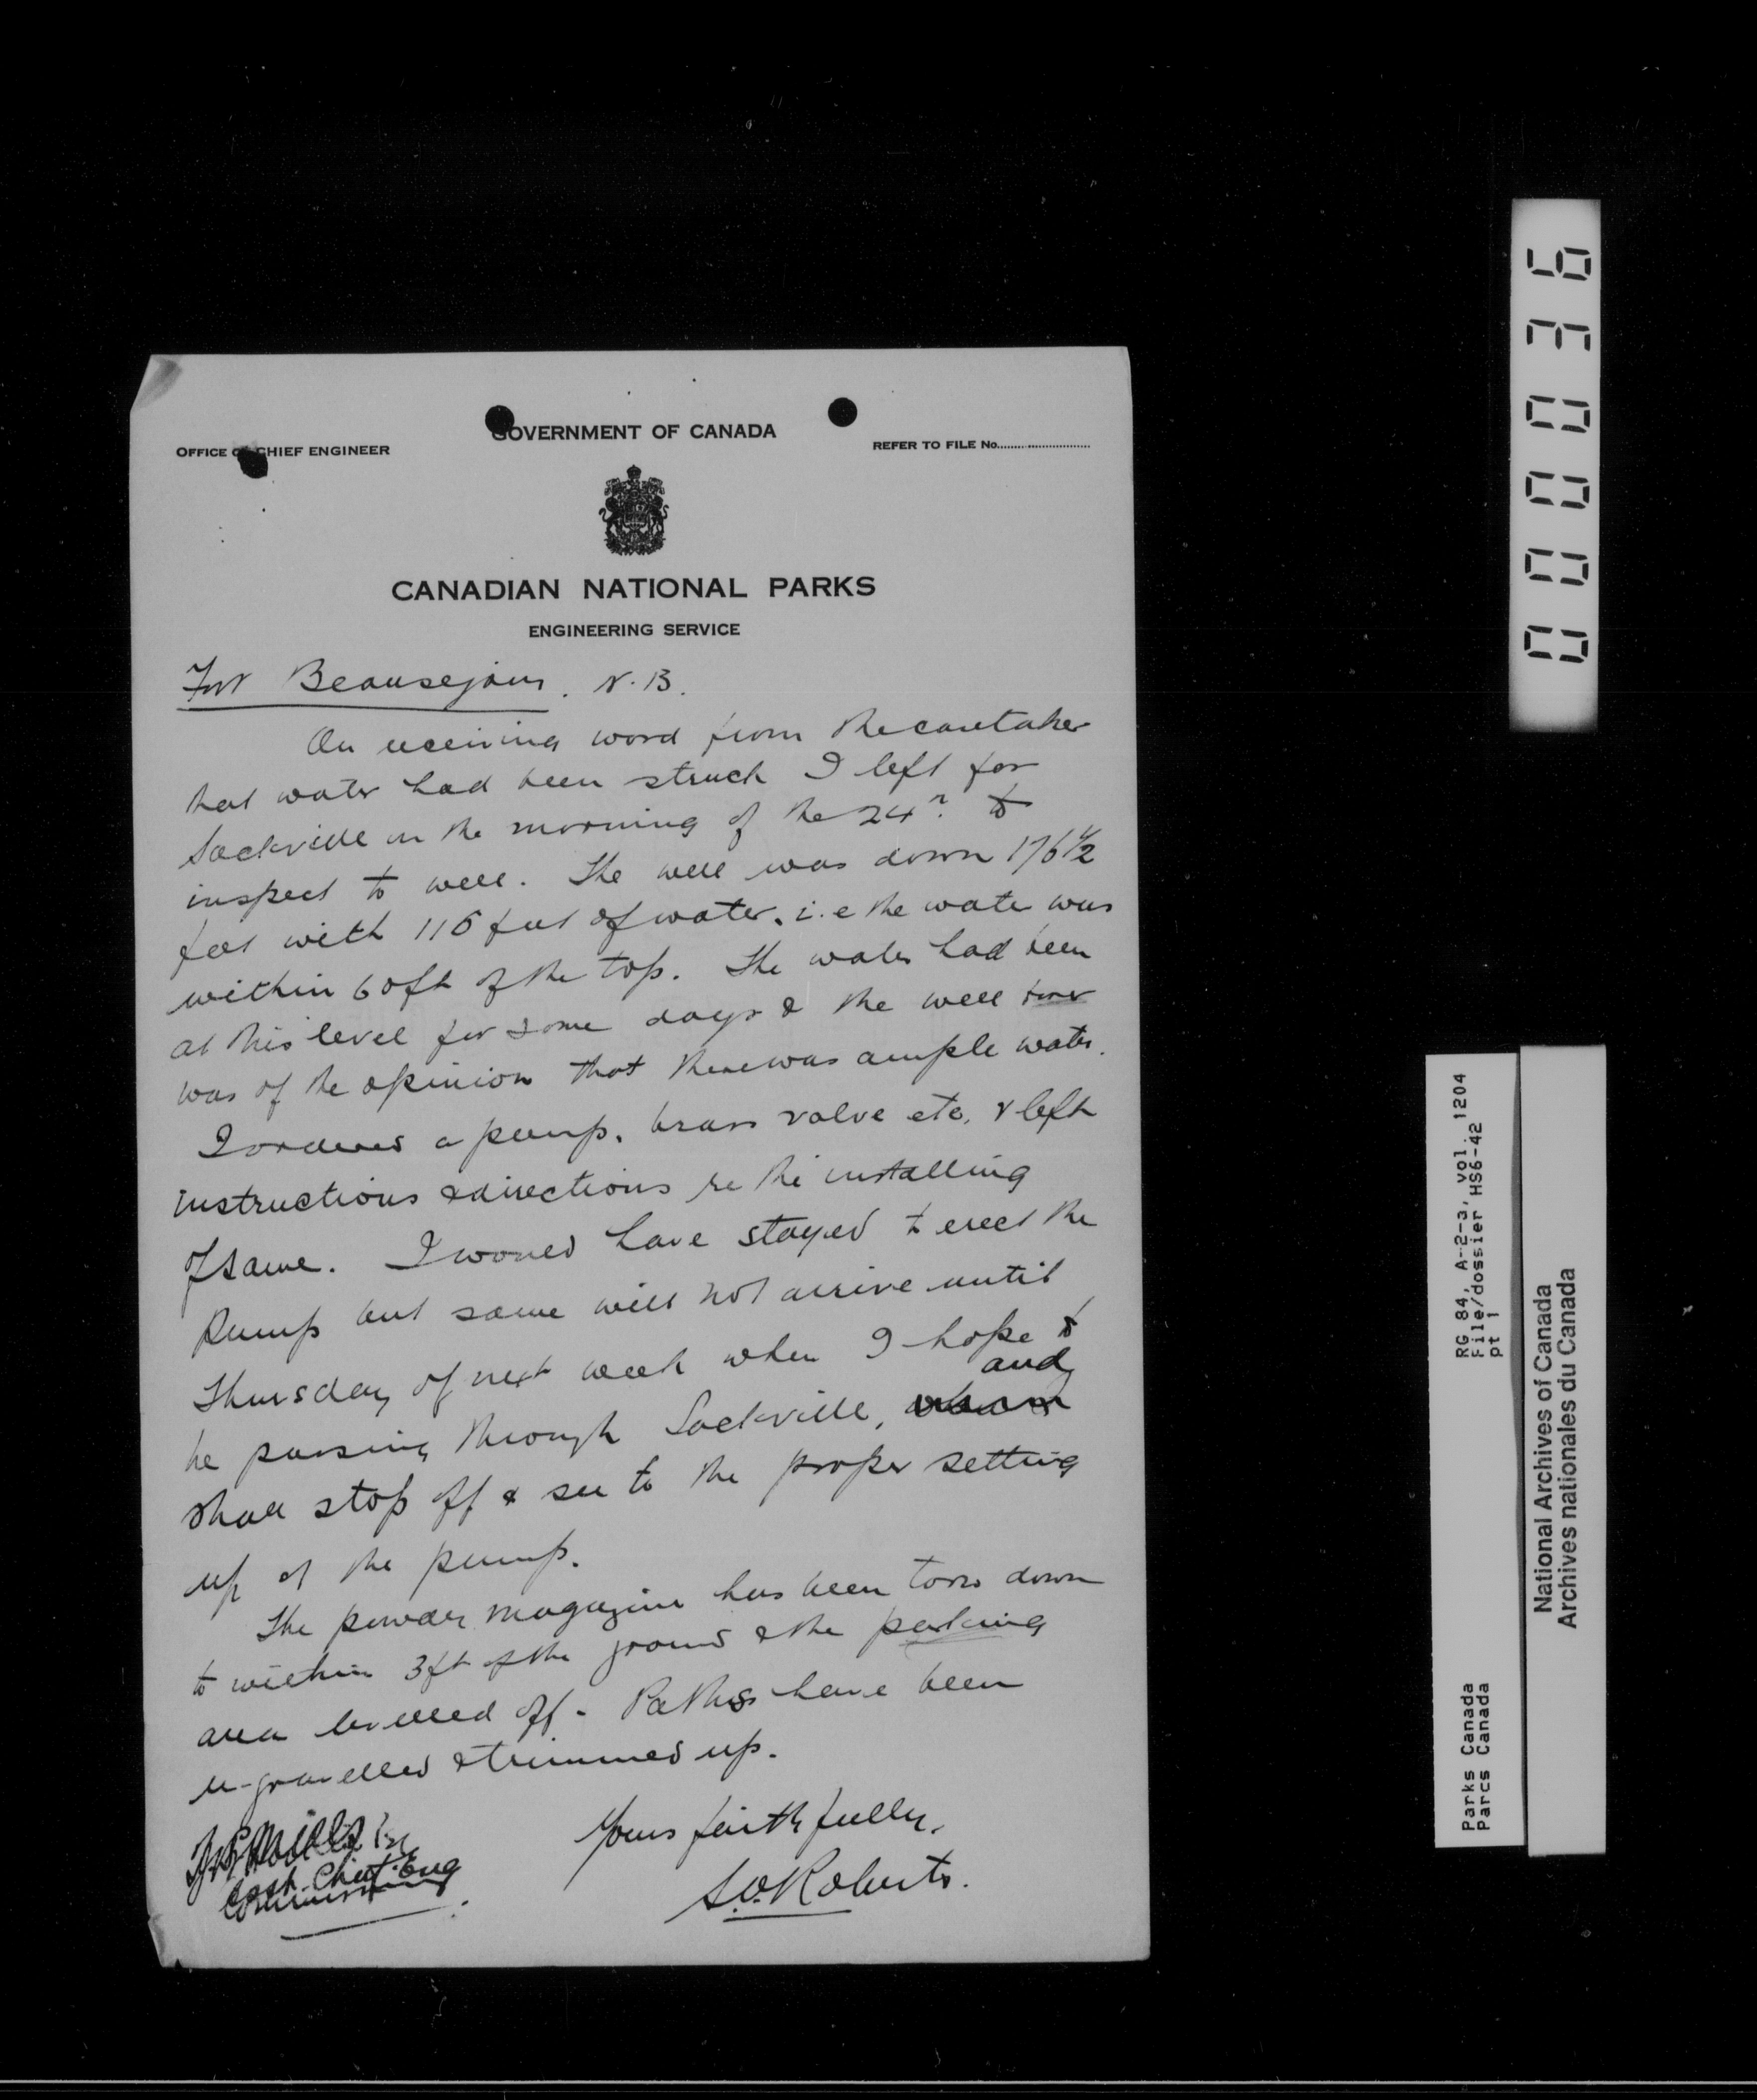 GOVERNMENT OF CANADA
OFFICE OF CHIEF ENGINEER
REFER TO FILE No.
CANADIAN NATIONAL PARKS
ENGINEERING SERVICE
Fort Beausejour. N.B.
On receiving word from the caretaker
that water had been struck I left for
Sackville on the morning of the 24th to
inspect to well. The well was down 176 1/2
feet with 116 feet of water. i.e the water was
within 60 ft of the top. The water had been
at this level for some days & the well
was of the opinion that there was ample water.
I ordered a pump, brass valve etc. & left
instructions & directions re the installing
of same. I would have stayed to erect the
Pump but same will not arrive until
Thursday of next week when I hope to
be passing through Sackville, and
shall stop off & see to the proper setting
up of the pump.
The powder magazine has been torn down
to within 3 ft of the ground & the parking
area levelled off. Paths have been
re-gravelled & trimmed up.
Yours faithfully,
Chief Eng
S.O. Roberts.
000036
RG 84, A-2-3, vol. 1204
File/dossier HS6-42
pt 1
Parks Canada
Parcs Canada
National Archives of Canada
Archives nationales du Canada